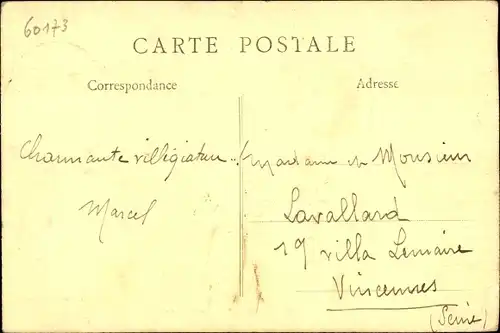 60173
CARTE POSTALE
Correspondance
Adresse
Charmante villégiature..!
Marcel
Madame et Monsieur
Lavallard
19 villa Lemaire
Vincennes
(Seine)